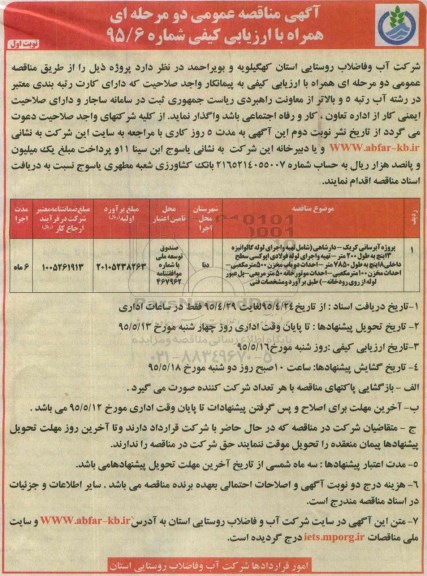 آگهی مناقصه عمومی دو مرحله ای
همراه با ارزیابی کیفی شماره ۹۵/۶
نوبت اول
شرکت آب وفاضلاب روستایی استان کهگیلویه و بویراحمد در نظر دارد پروژه ذیل را از طریق مناقصه
عمومی دو مرحله ای همراه با ارزیابی کیفی به پیمانکار واجد صلاحیت که دارای کارت رتبه بندی معتبر
در رشته آب رتبه ۵ و بالاتر از معاونت راهبردی ریاست جمهوری ثبت در سامانه ساجار و دارای صلاحیت
ایمنی کار از اداره تعاون ، کار و رفاه اجتماعی باشد واگذار نماید. از کلیه شرکتهای واجد صلاحیت دعوت
می گردد از تاریخ نشر نوبت دوم این آگهی به مدت ۵ روز کاری با مراجعه به سایت این شرکت به نشانی
www.abfar-kb.ir و یا دبیرخانه این شرکت به نشانی یاسوج ابن سینا ۱۱و پرداخت مبلغ یک میلیون
و پانصد هزار ریال به حساب شماره ۲۱۶۵۲۱۴۰۵۵۰۰۷ بانک کشاورزی شعبه مطهری یاسوج نسبت به دریافت
اسناد مناقصه اقدام نمایند.
ردیف
موضوع مناقصه
شهرستان محل اجرا
محل تامین اعتبار
مبلغ برآورد اولیه(ریال)
مبلغ ضمانتنامه معتبر شرکت در فرآیند ارجاع کار (ریال)
مدت اجرا
۱
پروژه آبرسانی کریک – دارشاهی (شامل تهیه واجرای لوله گالوانیزه
۳اینچ به طول ۲۰۰ متر – تهیه واجرای لوله فولادی اپوکسی سطح
داخلی ۸اینچ به طول ۷۸۵۰ متر –احداث دو باب مخزن ۵۰۰ مترمکعبی-
احداث مخزن ۱۰۰ مترمکعبی – احداث موتورخانه ۵۰ متر مربعی – پل عبور
لوله از روی رودخانه –) طبق برآورد ومشخصات فنی
دنا
صندوق توسعه ملی با شماره موافقتنامه ۴۶۷۹۶۲
۲۰۱۰۵۲۳۸۲۶۳
۱۰۰۵۲۶۱۹۱۳
۶ ماه
۱-تاریخ دریافت اسناد : از تاریخ ۹۵/۴/۲۴لغایت ۹۵/۴/۲۹ فقط در ساعات اداری
۲- تاریخ تحویل پیشنهادها : تا پایان وقت اداری روز چهار شنبه مورخ ۹۵/۵/۱۳
۳-تاریخ ارزیابی کیفی :روز شنبه مورخ ۹۵/۵/۱۶
۴- تاریخ گشایش پیشنهادها: ساعت ۱۰صبح روز دو شنبه مورخ ۹۵/۵/۱۸
الف - بازگشایی پاکتهای مناقصه با هر تعداد شرکت کننده صورت می گیرد .
ب- آخرین مهلت برای اصلاح و پس گرفتن پیشنهادات تا پایان وقت اداری مورخ ۹۵/۵/۱۲ می باشد .
ج - متقاضیان شرکت در مناقصه که در حال حاضر با شرکت قرارداد دارند وتا آخرین روز مهلت تحویل
پیشنهادها پیمان منعقده را تحویل موقت ننمایند حق شرکت در مناقصه را ندارند.
۵- مدت اعتبار پیشنهادها : سه ماه شمسی از تاریخ آخرین مهلت تحویل پیشنهادهامی باشد.
۶- هزینه درج دو نوبت آگهی و اصلاحات احتمالی بعهده برنده مناقصه می باشد . سایر اطلاعات و جزئیات
در اسناد مناقصه مندرج است.
۷- متن این آگهی در سایت شرکت آب و فاضلاب روستایی استان به آدرس www.abfar-kb.ir و سایت
ملی مناقصات iets.mporg.ir درج گردیده است.
امور قراردادها شرکت آب وفاضلاب روستایی استان
۰۲۱-۸۸۳۴۹۶۷۰-۵